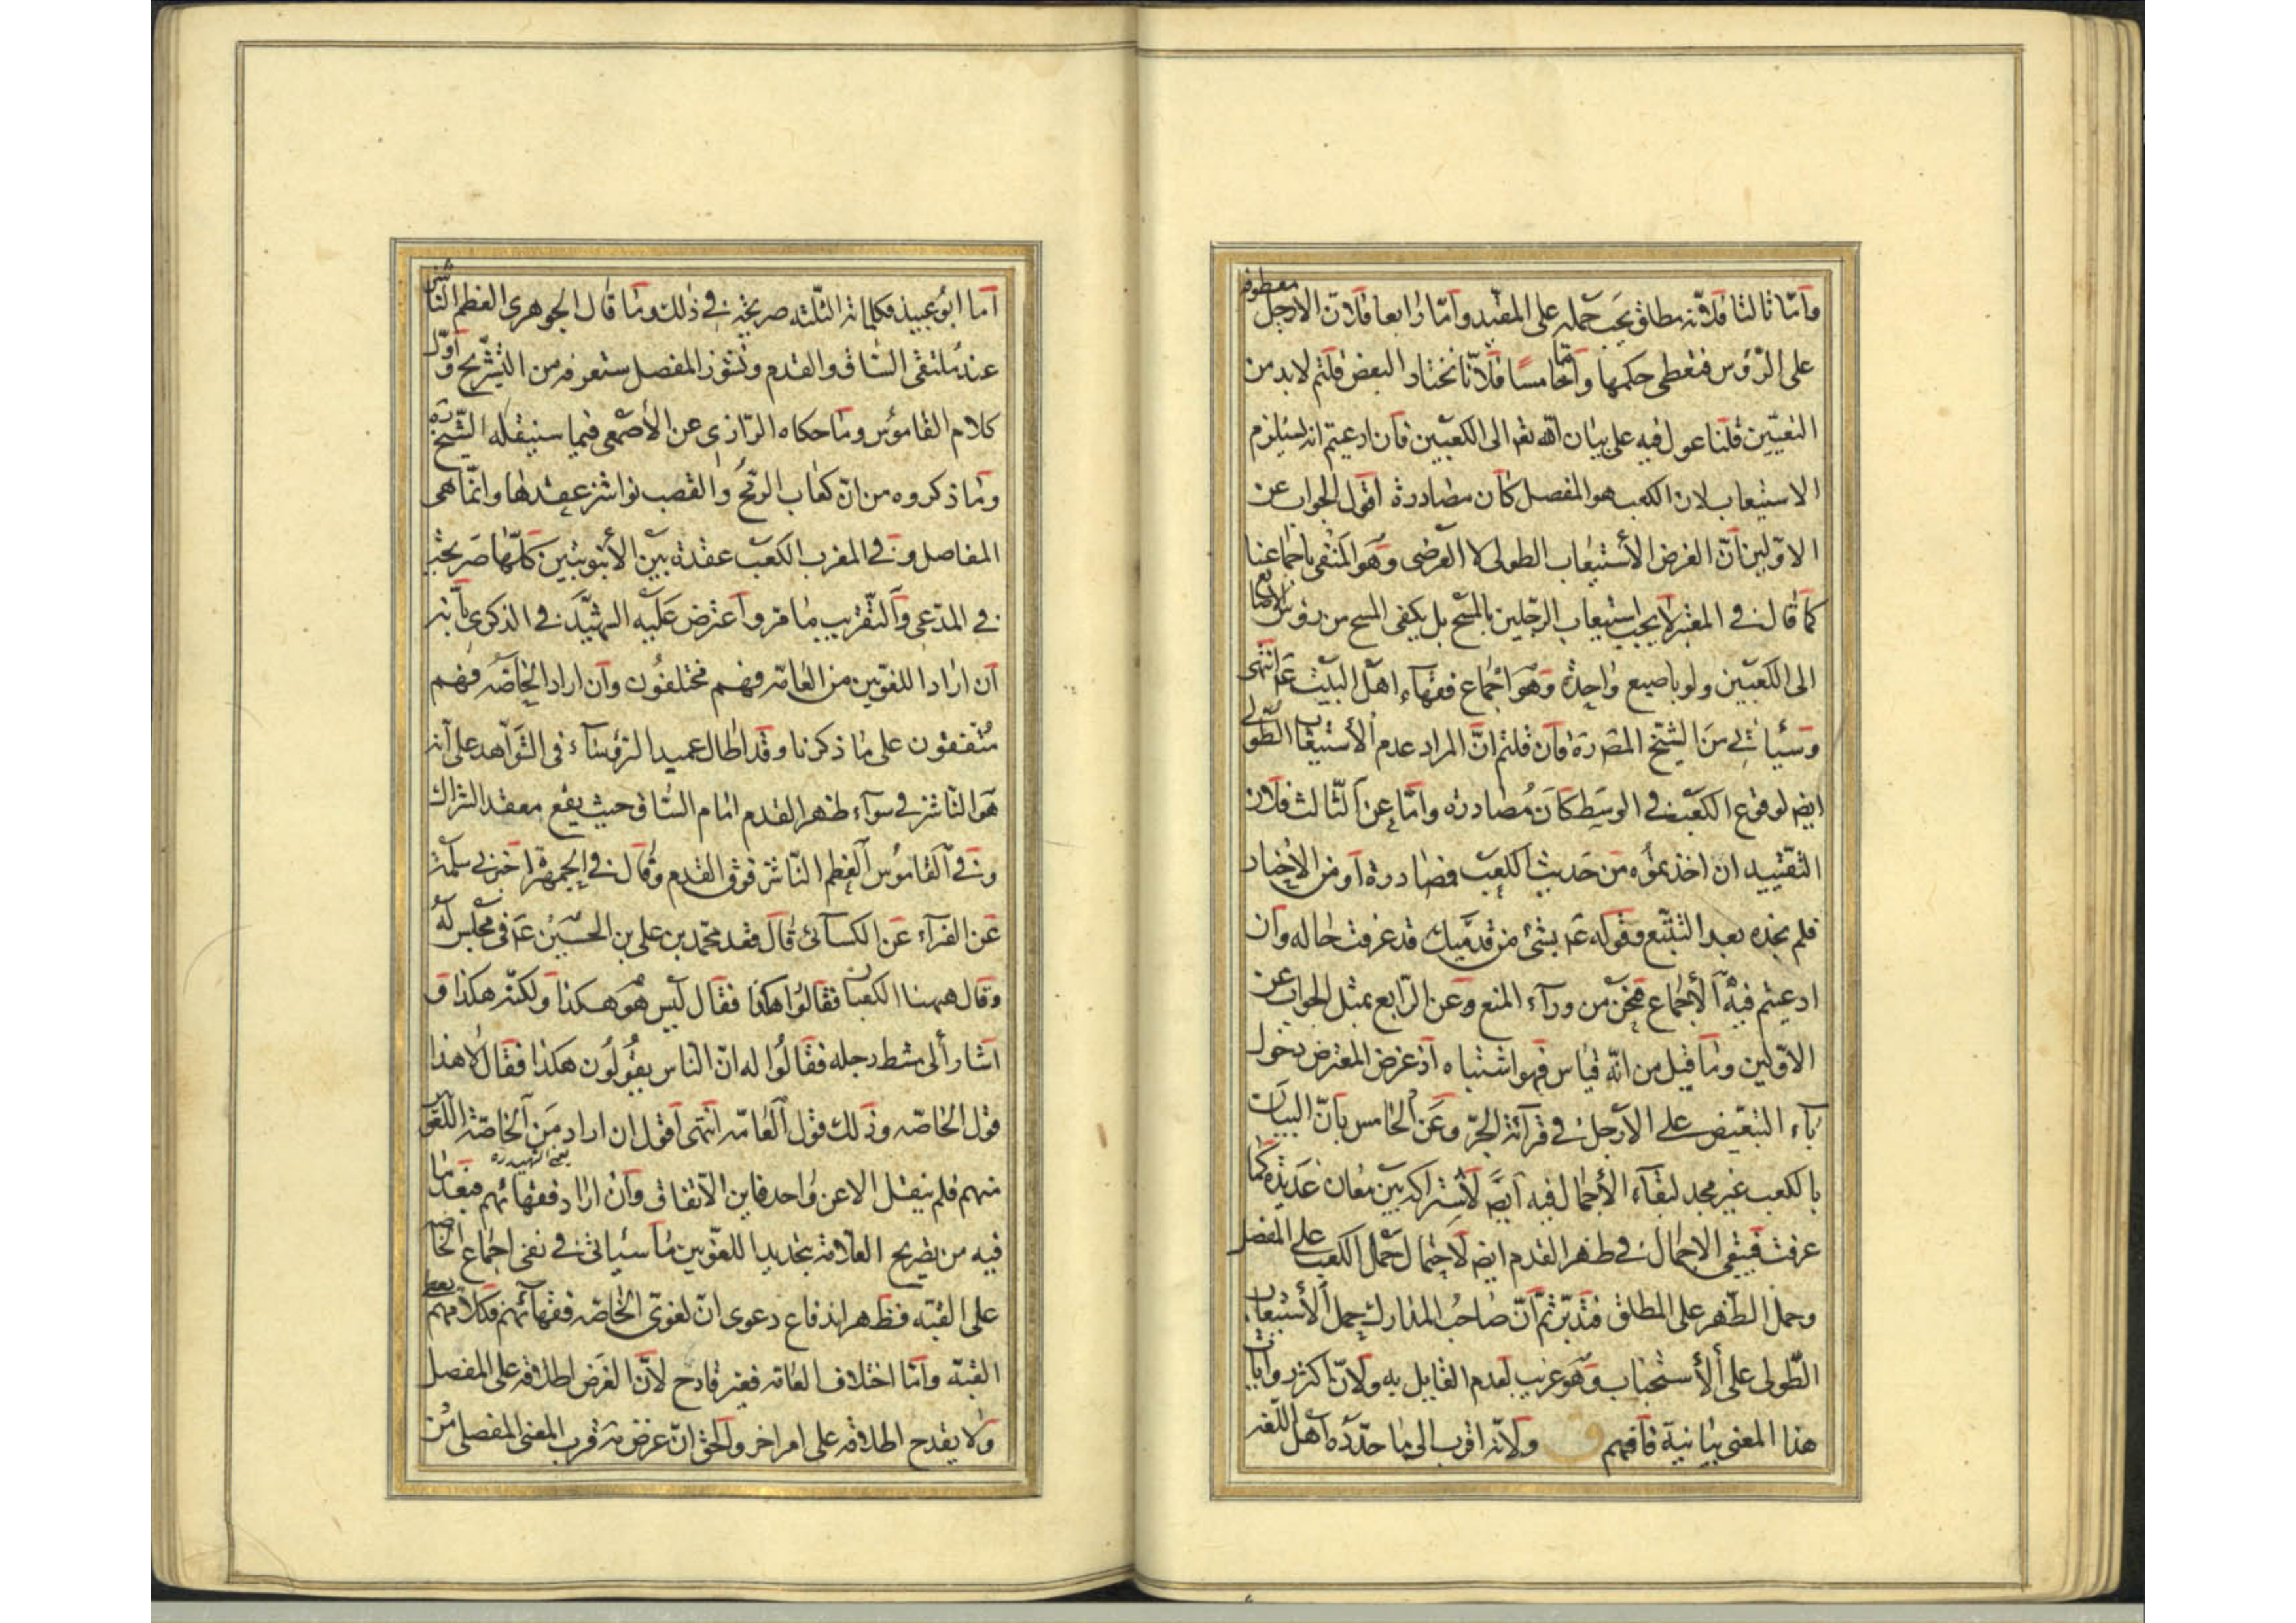 وأما ثالثا فلأنه مطلق يجب حمله على المقيد وأما رابعا فلأن الأرجل معطوفة
على الرؤس فتعطى حكمها وأما خامسا فلأنا نختار البعض قلتم لابد من
التعيين قلنا عول فيه على بيان الله تعم الى الكعبين فان ادعيتم انه يستلزم
الاستيعاب لان الكعب هو المفصل كان مصادرة اقول الجواب عن
الاولين أن الغرض الأستيعاب الطولى لا العرضى وهو المنفى باجماعنا
كما قال في المعتبر لا يجب استيعاب الرجلين بالمسح بل يكفى المسح من رؤس الاصابع
الى الكعبين ولو باصبع واحدة وهو اجماع فقهاء اهل البيت عم انتهى
وسيأتي من الشيخ المص ره فان قلتم ان المراد عدم الأستيعاب الطولي
ايض لوقوع الكعب في الوسط كان مصادرة واما عن الثالث فلان
التقييد ان اخذتموه من حديث الكعب فصادرة او من الأخبار
فلم نجده بعد التتبع وقوله عم بشئ من قدميك قد عرفت حاله وان
ادعيتم فيه الأجماع فنحن من وراء المنع وعن الرابع بمثل الجواب عن
الاولين وما قيل من انه قياس فهو اشتباه اذ غرض المعترض دخول
باء التبعيض على الارجل في قرائة الجر وعن الخامس بان البيان
بالكعب غير مجد لبقاء الأجمال فيه ايض لاشتراكه بين معان عديدة كما
عرفت فيبقى الاجمال في ظهر القدم ايض لاحتمال حمل الكعب على المفصل
وحمل الظهر على المطلق فتدبر ثم أن صاحب المدارك حمل الأستيعاب
الطولى على الأستحباب وهو غريب لعدم القايل به ولان اكثر روايات
هذا المعنى بيانية فافهم ق ولانه اقرب الى ما حدده اهل اللغة
أما ابو عبيد فكلماته الثلثة صريحة في ذلك وما قال الجوهرى العظم الناشز
عند ملتقى الساق والقدم ونشوز المفصل ستعرفه من التشريح و اول
كلام القاموس وما حكاه الرازي عن الأصمعى فيما سينقله الشيخ ره
وما ذكروه من ان كعاب الرمح والقصب نواشز عقدها وانما هى
المفاصل وفي المغرب الكعب عقدة بين الأنبوبتين كلها صريحة
في المدعى والتقريب ما مر واعترض عليه الشهيد في الذكرى بأنه
ان اراد اللغويين من العامة فهم مختلفون وان اراد الخاصة فهم
متفقون على ما ذكرنا وقد اطال عميد الرؤساء في الشواهد على انه
هو الناشز في سواء ظهر القدم امام الساق حيث يقع معقد الشراك
وفي القاموس العظم الناشز فوق القدم وقال في الجمهرة اخبرني سلمة
عن الفراء عن الكسائي قال قعد محمد بن علي بن الحسين عم في مجلس له
وقال ههنا الكعبان فقالوا هكذا فقال ليس هو هكذا ولكنه هكذا و
اشار ألى مشط رجله فقالوا له ان الناس يقولون هكذا فقال لا هذا
قول الخاصة وذلك قول العامة انتهى اقول ان اراد من الخاصة اللغويين
يعنى الشهيد ره
منهم فلم ينقل الا عن واحد فاين الاتفاق وان اراد فقهائهم فبعد ما
فيه من تصريح العلامة بتحديد اللغويين ما سيأتي في نفى اجماع الخاصة
على القبة فظهر اندفاع دعوى ان لغوي الخاصة فقهائهم فكلامهم يعطى
القبة واما اختلاف العامة فغير قادح لأن الغرض اطلاقه على المفصل
ولا يقدح اطلاقه على امر اخر والحق ان غرضه قرب المعنى المفصلى من